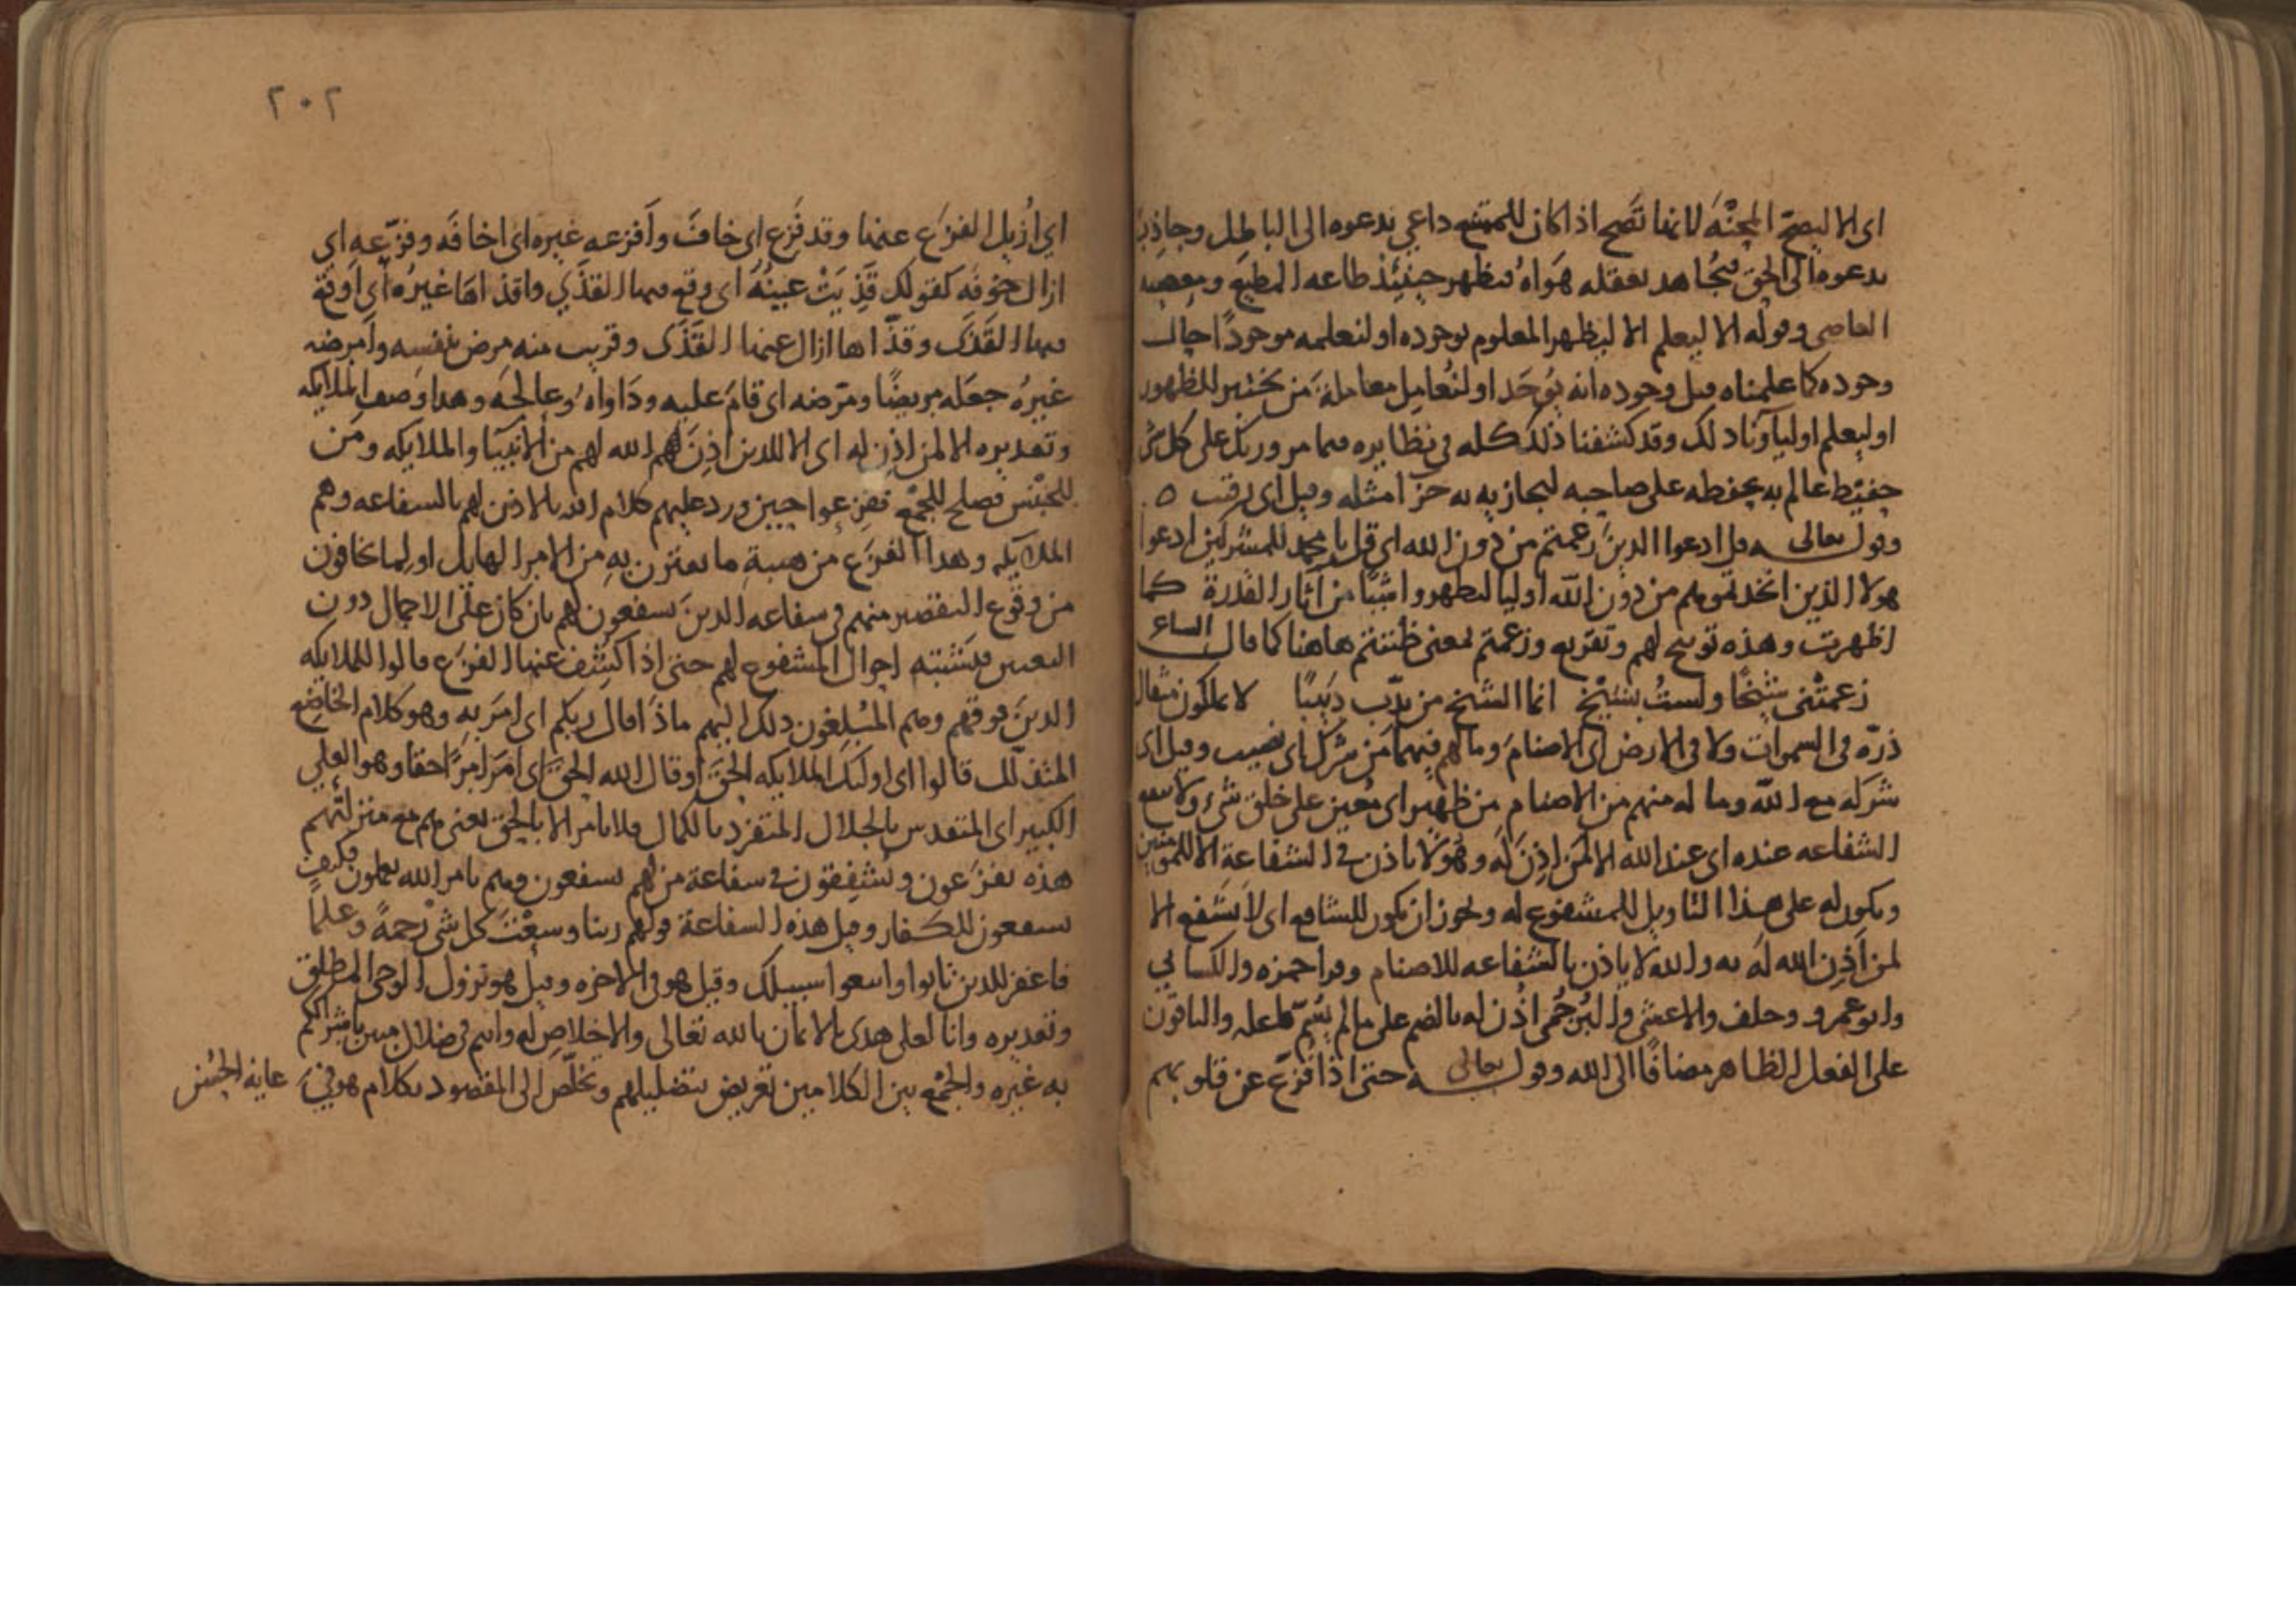 اى الا ليصح المحنة لانها تصح اذا كان للممتنع داعى يدعوه الى الباطل وجاذب
يدعوه الى الحق فيجاهد بعقله هواه فيظهر حينئذ طاعه المطيع ومعصيه
العاصى وقوله الا ليعلم الا ليظهر المعلوم بوجوده او لنعلمه موجودًا حال
وجوده كما علمناه قبل وجوده انه يوجد او لنعامل معاملة من يختبر للظهور
او ليعلم اولياونا ذلك وقد كشفنا ذلك كله فى نظايره فيما مر وربك على كل شى
حفيظ عالم به يحفظه على صاحبه ليجازيه به جزا مثله وقيل اى رقيب ه
وقوله تعالى قل ادعوا الذين زعمتم من دون الله اى قل يا محمد للمشركين ادعوا
هولا الذين اتخذتموهم من دون الله اوليا ليظهروا شيًا من آثار القدرة كما
اظهرت وهذه توبيخ لهم وتقريع وزعمتم بمعنى ظننتم هاهنا كما قال الشاعر
زعمتنى شيخًا ولست بشيخ انما الشيخ من يدب دبيبًا لا يملكون مثقال
ذرة فى السموات ولا فى الارض اى الاصنام وما لهم فيهما من شرك اى نصيب وقيل اى
شركه مع الله وما له منهم من الاصنام من ظهير اى معين على خلق شىء ولا تنفع
الشفاعه عنده اى عند الله الا لمن اذن له وهو لا ياذن فى الشفاعة الا للمومنين
ويكون له على هذا التاويل للمشفوع له ويجوز ان يكون للشافع اى لا تشفع الا
لمن اذن الله له به والله لا ياذن بالشفاعه للاصنام وقرا حمزه والكسايى
وابو عمرو وخلف والاعشى والبرجمى اذن له بالضم على ما لم يسم فاعله والباقون
على الفعل الظاهر مضافًا الى الله وقوله تعالى حتى اذا فزع عن قلوبهم
٢٠٢
اى ازيل الفزع عنها وقد فزع اى خاف وافزعه غيره اى اخافه وفزعه اى
ازال خوفه كقولك قذيت عينه اى وقع فيها القذى واقذاها غيره اى اوقع
فيها القذى وقذاها ازال عنها القذى وقريب منه مرض بنفسه وامرضه
غيره جعله مريضًا ومرضه اى قام عليه وداواه وعالجه وهذا وصف الملايكه
وتقديره الا لمن اذن له اى الا للذين اذن لهم الله لهم من الانبيا والملايكه ومن
للجنس فصلح للجمع ففزعوا حين ورد عليهم كلام الله بالاذن لهم بالشفاعه وهم
الملايكه وهذا الفزع من هيبة ما يقترن به من الامر الهايل او لما يخافون
من وقوع التقصير منهم فى شفاعه الذين يشفعون لهم بان كان على الاجمال دون
التعيين فيشتبه احوال المشفوع لهم حتى اذا كشف عنها الفزع قالوا للملايكه
الذين فوقهم وهم المبلغون ذلك اليهم ماذا قال ربكم اى امر به وهو كلام الخاضع
المتذلل قالوا اى اوليك الملايكه الحق او قال الله الحق اى امر امرًا حقا وهو العلى
الكبير اى المتقدس بالجلال المتفرد بالكمال فلا يامر الا بالحق يعنى هم مع منزلتهم
هذه يفزعون ويشفقون فى شفاعة من لهم يشفعون وهم بامر الله يعملون فكيف
يشفعون للكفار وقيل هذه الشفاعة قولهم ربنا وسعت كل شى رحمة وعلمًا
فاغفر للذين تابوا واتبعوا سبيلك وقيل هو فى الاخره وقيل هو نزول الوحى المطلق
وتقديره وانا لعلى هدى بالايمان بالله تعالى والاخلاص له وانتم فى ضلال مبين باشراككم
به غيره والجمع بين الكلامين تعريض بتضليلهم وتخلص الى المقصود بكلام هو فى غاية الحسن